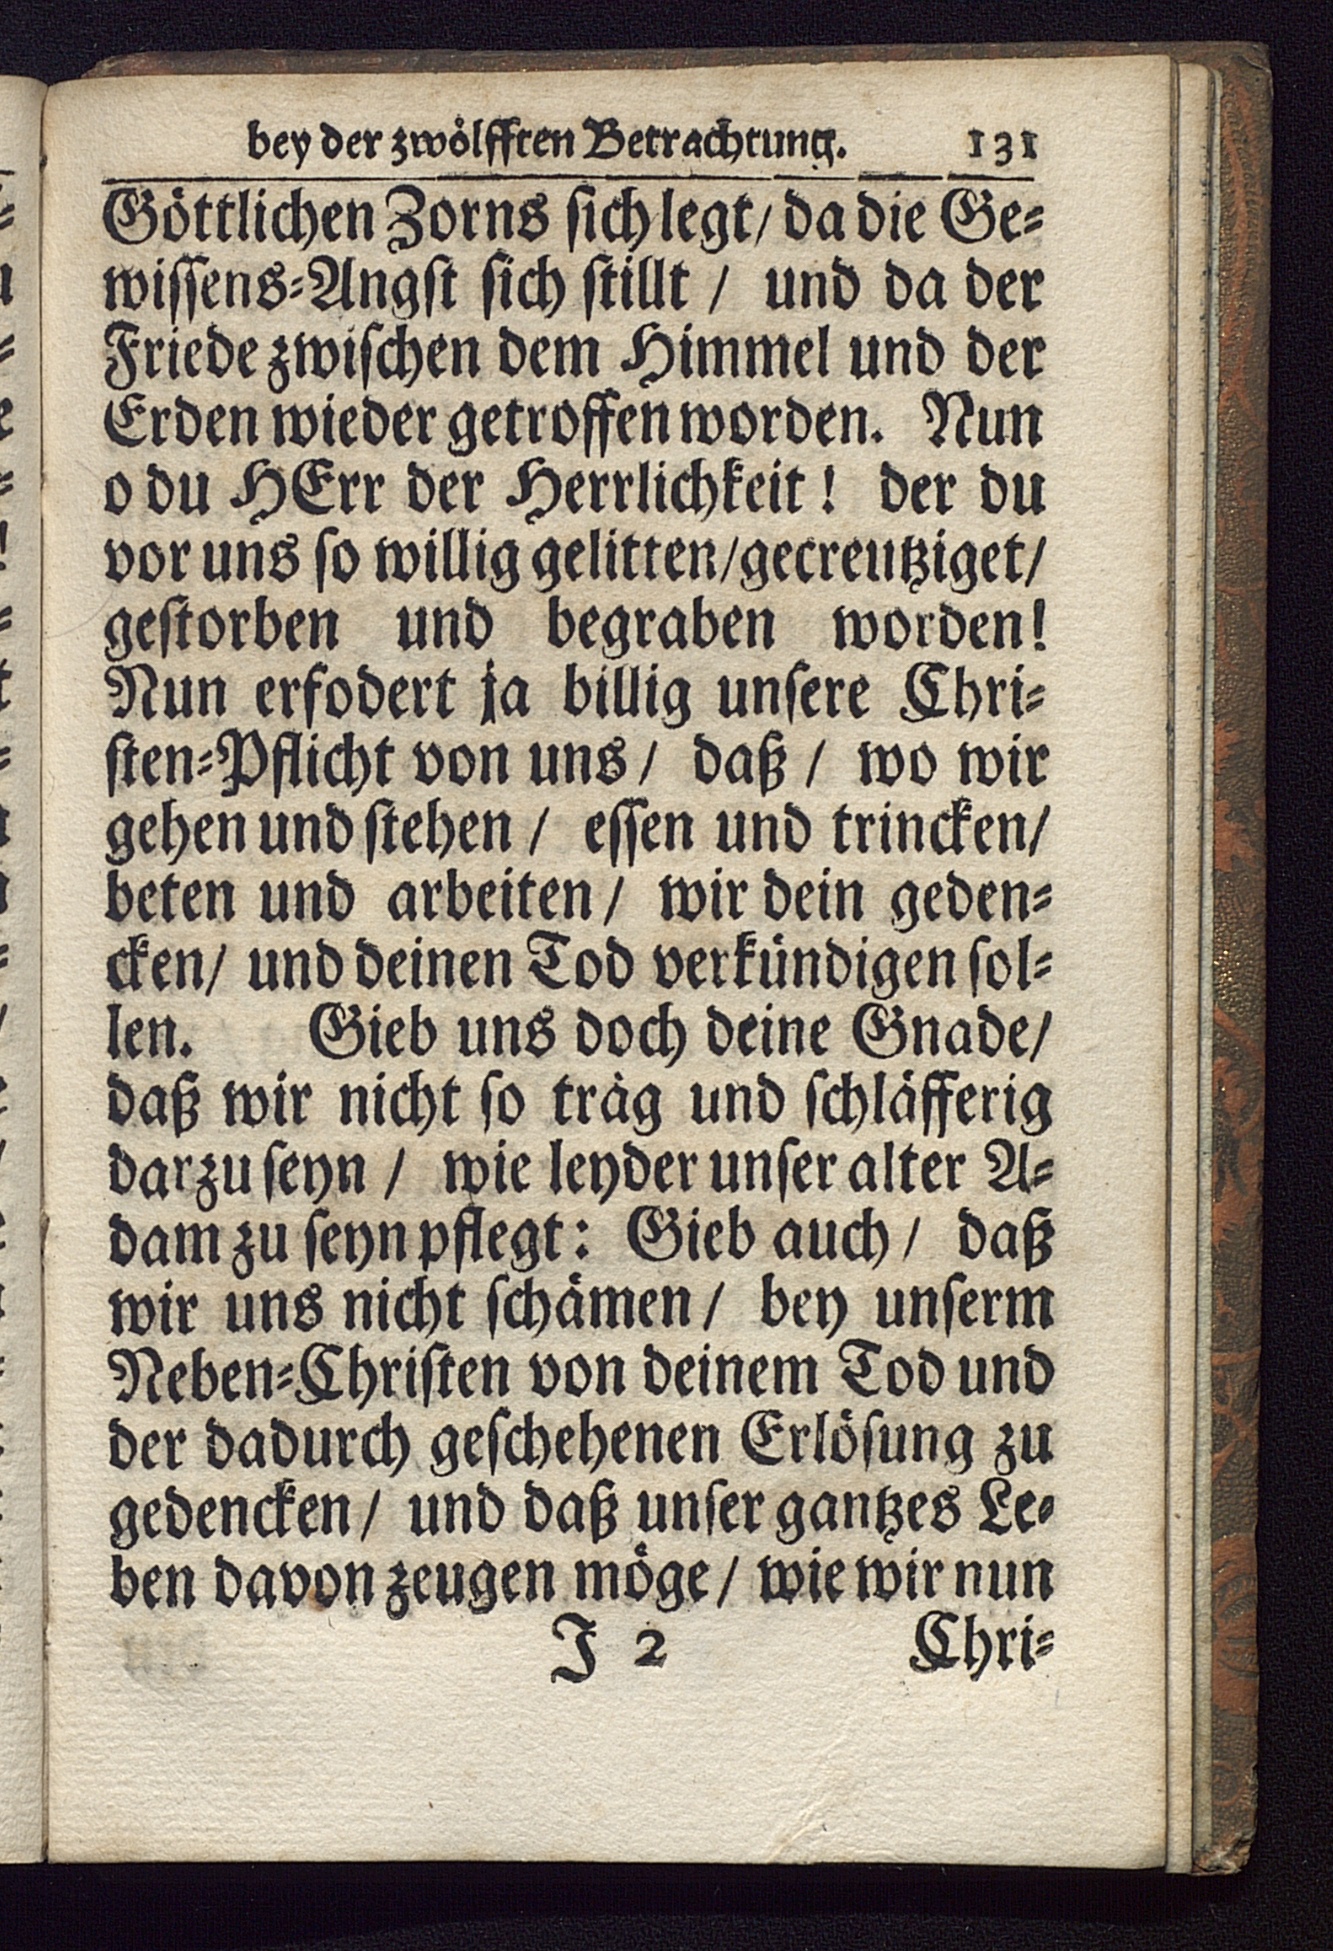 bey der zwölfften Betrachtung. 131
Göttlichen Zorns ſich legt/ da die Ge⸗
wiſſens⸗Angſt ſich ſtillt / und da der
Friede zwiſchen dem Himmel und der
Erden wieder getroffen worden. Nun
o du HErr der Herrlichkeit! der du
vor uns ſo willig gelitten/gecreutziget/
geſtorben und begraben worden!
Nun erfodert ja billig unſere Chri⸗
ſten⸗Pflicht von uns/ daß / wo wir
gehen und ſtehen / eſſen und trincken/
beten und arbeiten/ wir dein geden⸗
cken/ und deinen Tod verkündigen ſol⸗
len. Gieb uns doch deine Gnade/
daß wir nicht ſo träg und ſchläfferig
darzu ſeyn / wie leyder unſer alter A⸗
dam zu ſeyn pflegt: Gieb auch / daß
wir uns nicht ſchämen/ bey unſerm
Neben⸗Chriſten von deinem Tod und
der dadurch geſchehenen Erlöſung zu
gedencken/ und daß unſer gantzes Le⸗
ben davon zeugen möge/ wie wir nun
J 2 Chri⸗